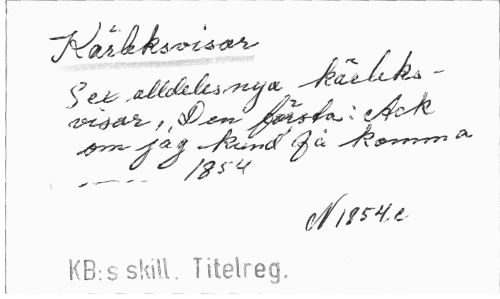 Kärleksvisar
Sex alldeles nya kärleks-
visar, Den första: Ack
om jag kund' få komma
----- 1854
N 1854.c
KB:s skill. Titelreg.